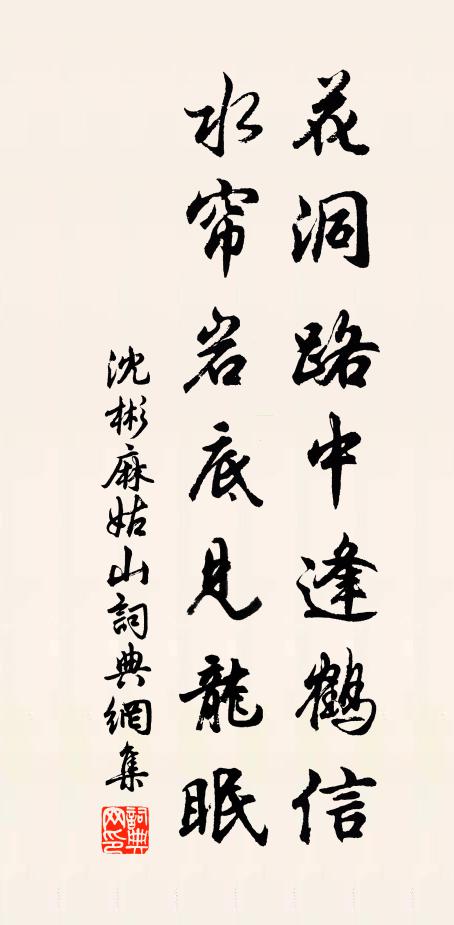 花洞路中逢鹤信
水帘岩底见龍眠
沈彬麻姑山詞典網集
詞典網印